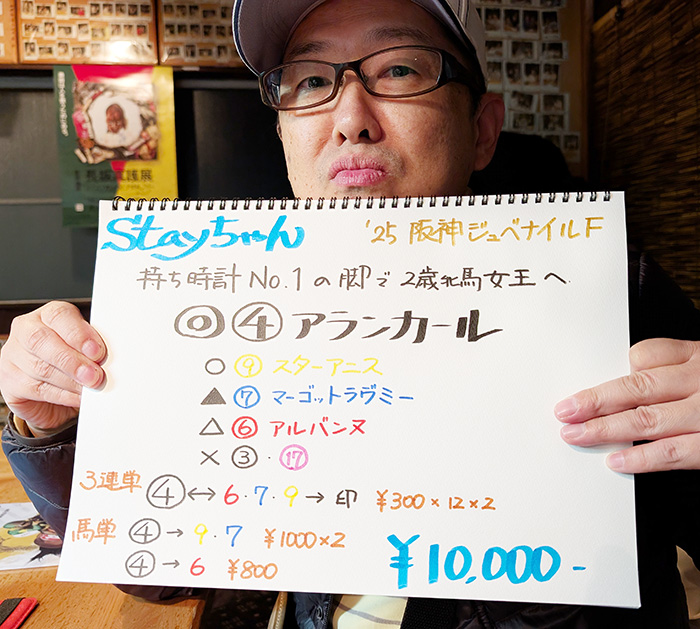 Stayちゃん '25 阪神ジュベナイルF
持ち時計No.1の脚で2歳牝馬女王へ
◎④アランカール
○⑨スターアニス
▲⑦マーゴットラヴミー
△⑥アルバンヌ
×③・⑰
3連単④↔6・7・9→印 ¥300×12×2
馬単④→9・7 ¥1000×2
④→6 ¥800
¥10,000-